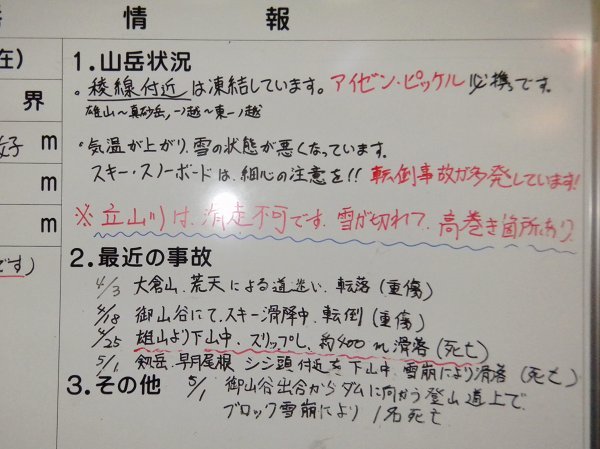 情報
在)
界
m
m
m
です)
1.山岳状況
。稜線付近は凍結しています。アイゼン・ピッケル必携です。
雄山〜真砂岳,一ノ越〜東一ノ越
。気温が上がり、雪の状態が悪くなっています。
スキー・スノーボードは、細心の注意を!! 転倒事故が多発しています!
※立山川は、滑走不可です。雪が切れて、高巻き箇所あり
2.最近の事故
4/3 大倉山、荒天による道迷い、転落(重傷)
4/18 御山谷にて、スキー滑降中、転倒(重傷)
4/25 雄山より下山中、スリップし、約400m滑落(死亡)
5/1 剱岳、早月尾根 シシ頭付近を下山中、雪崩により滑落(死亡)
3.その他 5/1 御山谷出合からダムに向かう登山道上で
ブロック雪崩により 1名死亡